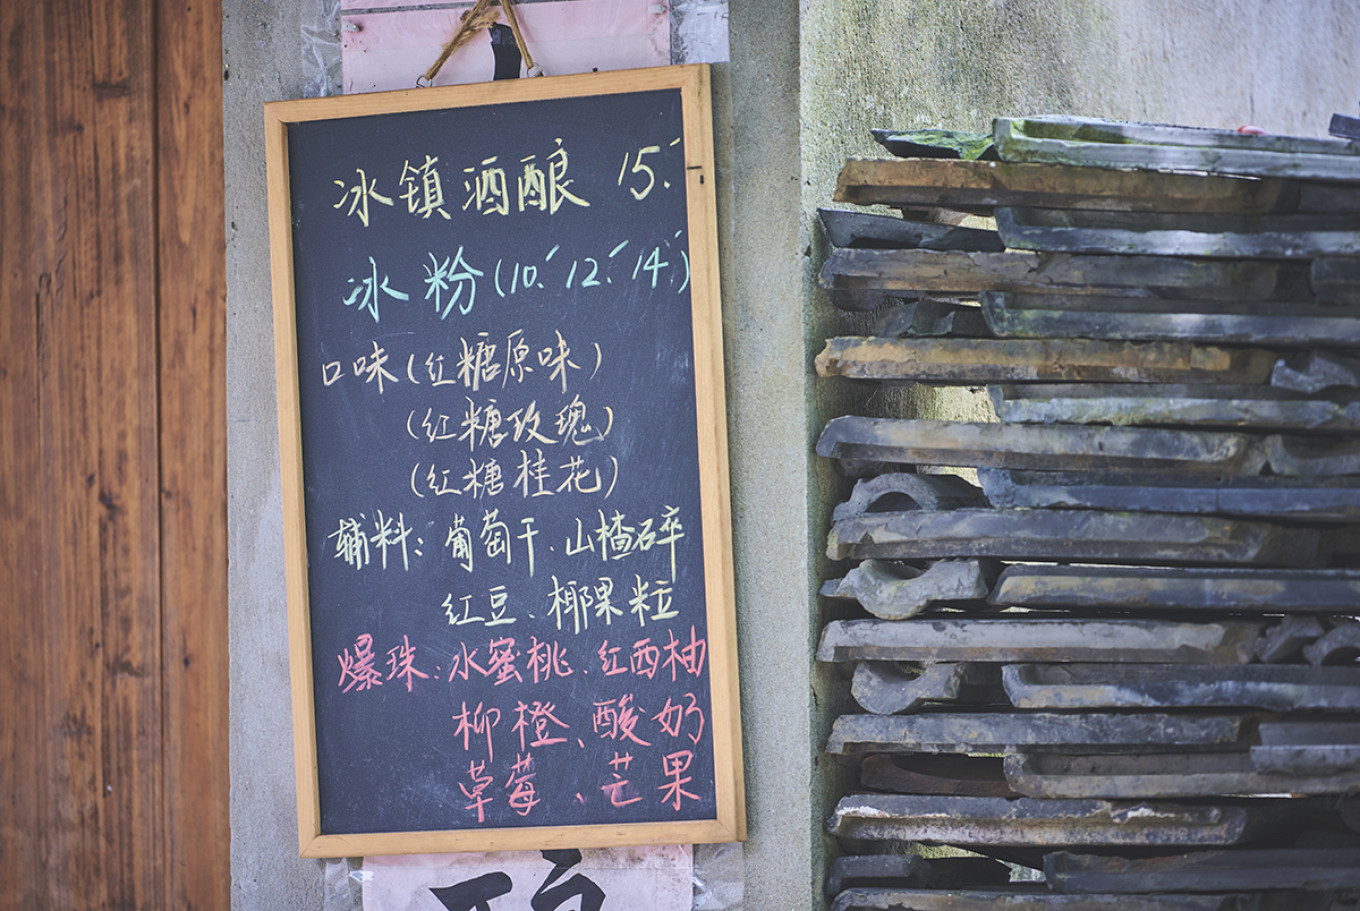 冰镇酒酿 15.
冰粉(10. 12. 14.)
口味(红糖原味)
(红糖玫瑰)
(红糖桂花)
辅料:葡萄干.山楂碎
红豆、椰果粒
爆珠:水蜜桃.红西柚
柳橙、酸奶
草莓、芒果